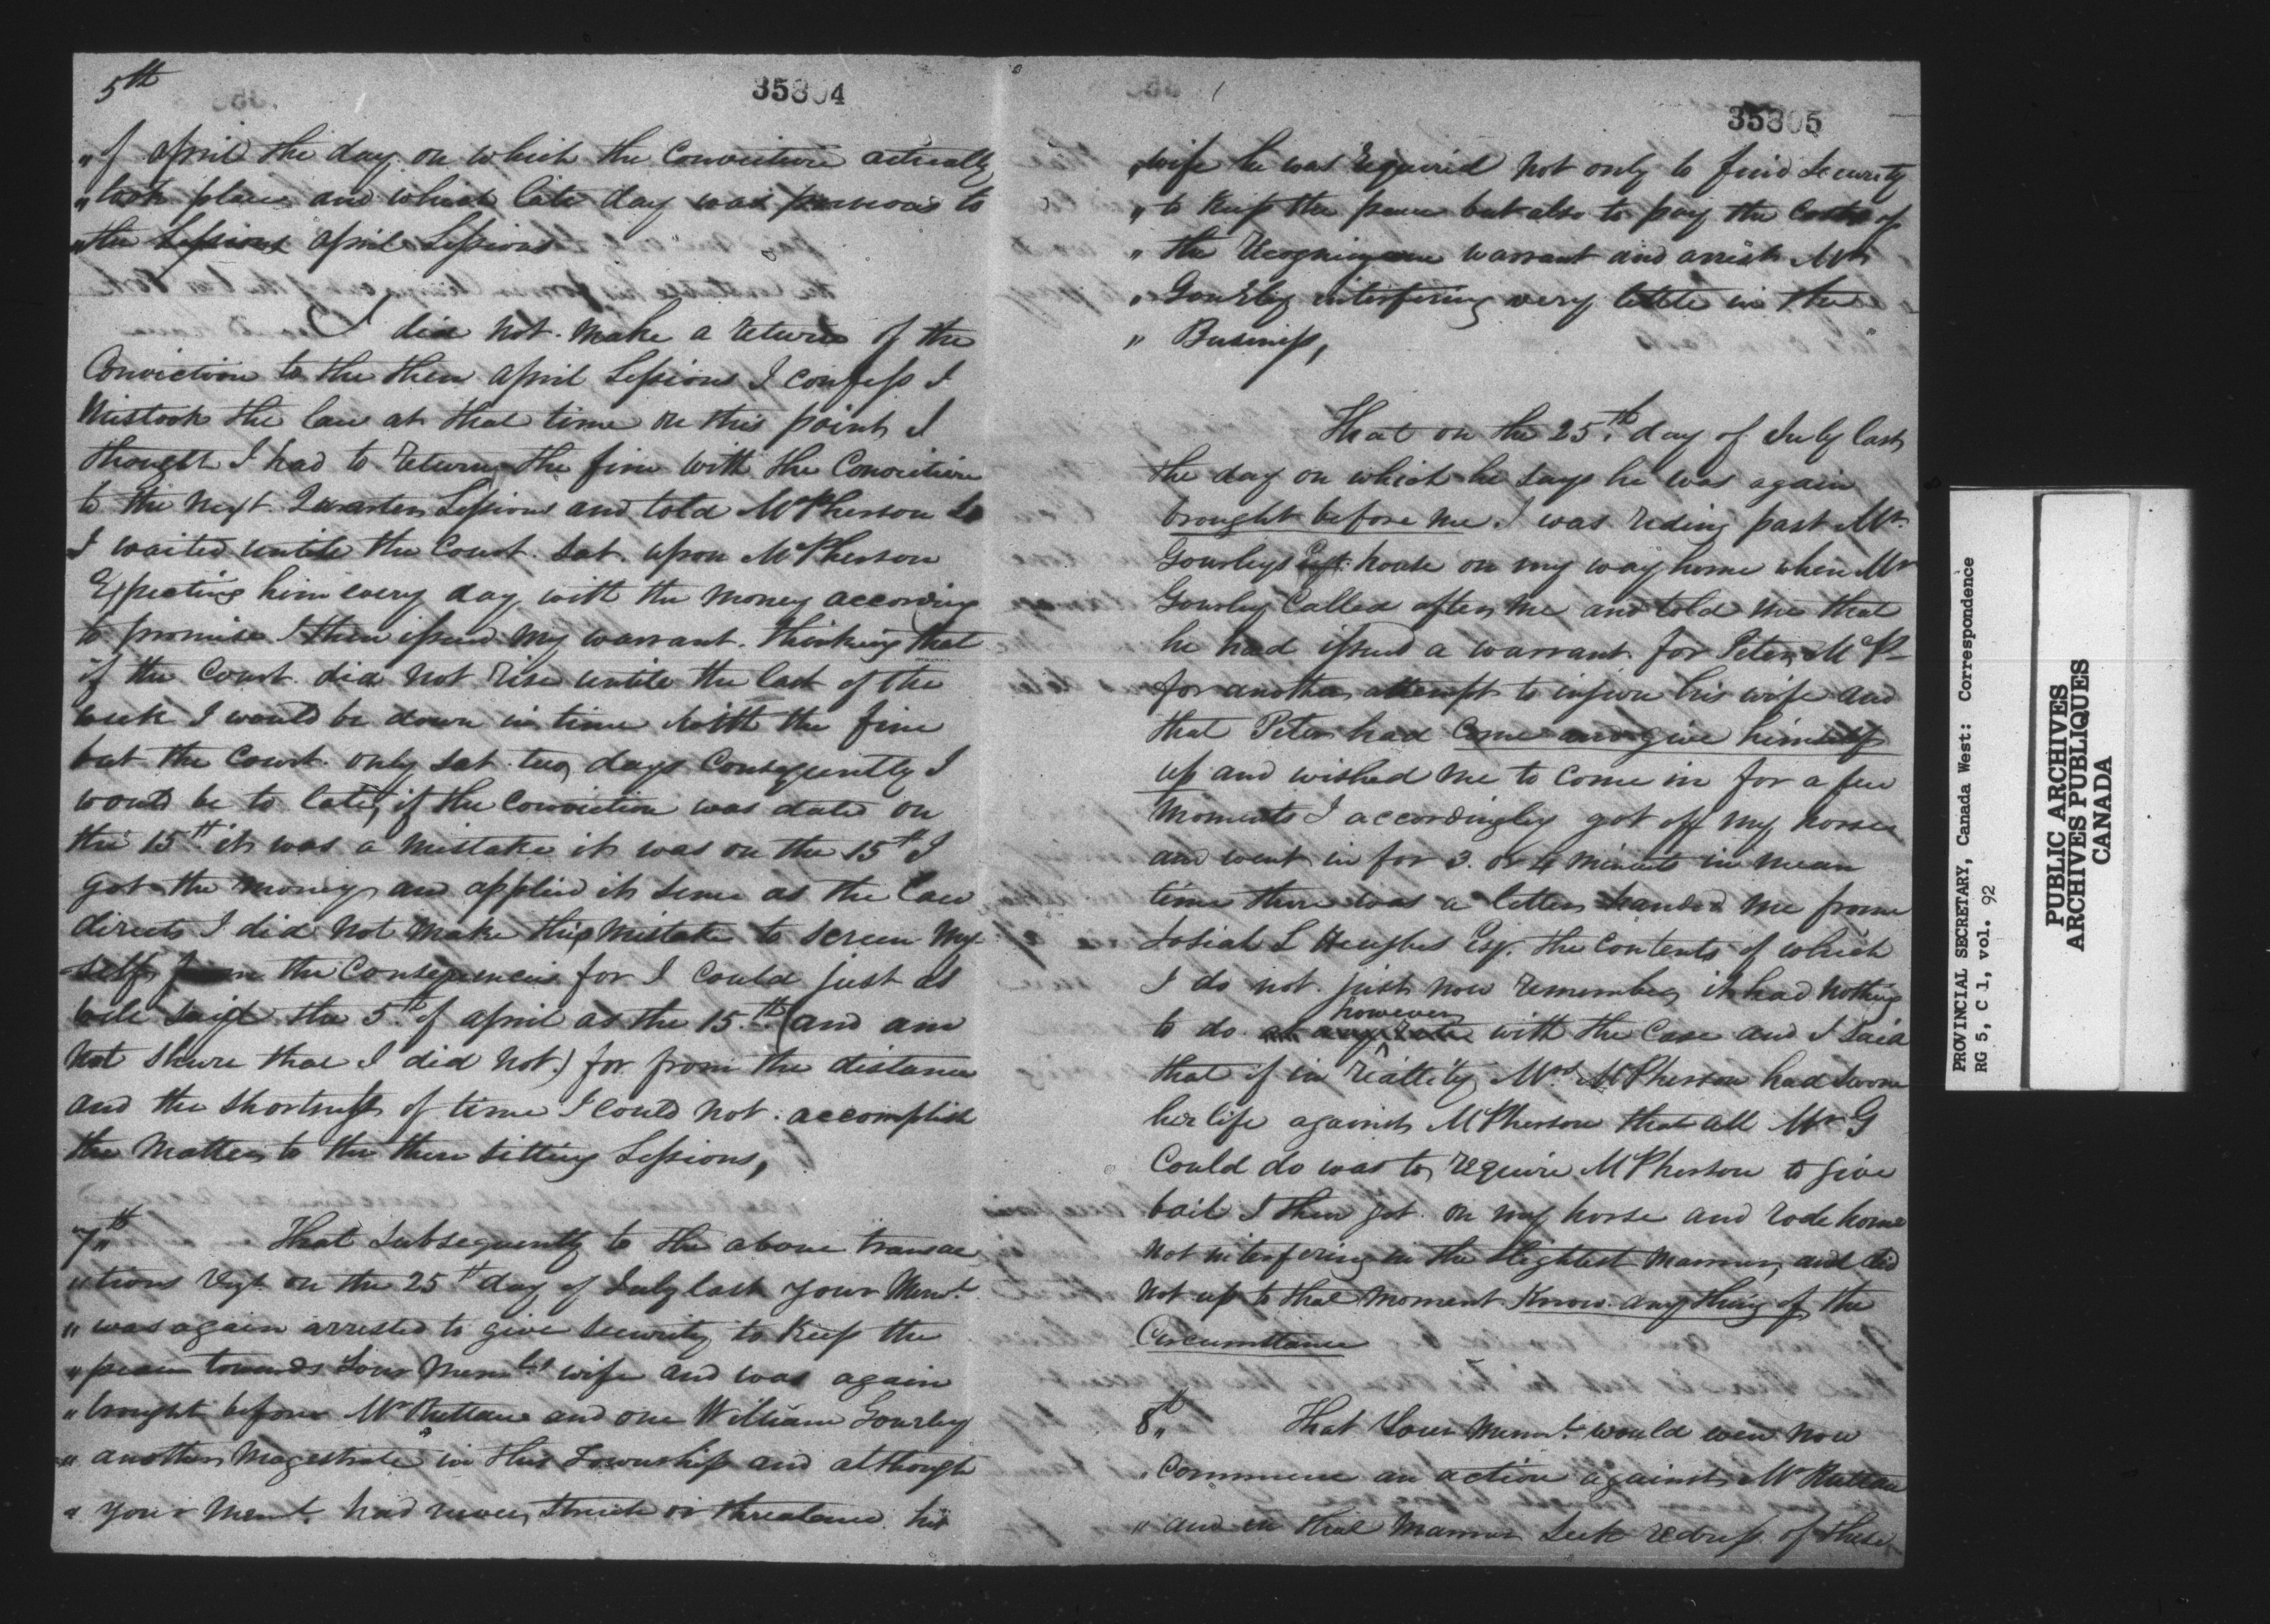 5th
35804
" of April the day on which the Conviction actually
" took place and which late day was previous to
" the Sessions April Sessions
I did not make a return of the
Conviction to the then April Sessions I confess I
Mistook the law at that time on this point I
thought I had to return the fine with the Conviction
to the next Quarter Sessions and told McPherson So
I waited untile the Court sat upon McPherson
Expecting him every day with the money according
to promise I then issued my warrant thinking that
if the Court did not rise untile the last of the
week I would be down in time with the fine
but the Court only sat two days Consequently I
would be to late, if the Conviction was date on
the 15th it was a mistake it was on the 15th I
got the money and applied it sence as the law
directs I did not make this mistake to screen My
self from the Consequences for I could just as
well said the 5th of April as the 15th (and am
not shure that I did not.) for from the distance
and the shortness of time I could not accomplish
the Matter to the then sitting Sessions,
7th That Subsequently to the above transac
" tions viz on the 25th day of July last your Memt
" was again arrested to give Security to Keep the
" peace towards Your Memts wife and was again
" brought before Mr Ruttan and one William Gourley
" another Magestrate in this Township and although
" your Memt had never struck or threatened his
35805
" wife he was required not only to find Security
" to Keep the peace but also to pay the Costs of
" the Recognizance warrant and arrest Mr
" Gourley interfering very little in the
" Business,
That on the 25th day of July last
the day on which he says he was again
brought before me I was rideing past Mr
Gourleys Esqr house on my way home when Mr
Gourley Called after me and told me that
he had issued a warrant for Peter McP-
for another attempt to injure his wife and
that Peter had Come and give himself
up and wished me to Come in for a few
Moments I accordingly got off my horse
and went in for 3. or 4 minuts in mean
time there was a letter handed me from
Josiah L Hughes Esqr. the Contents of which
I do not just now remember it had nothing
however
to do at any rate with the Case and I said
that if in reallity Mrs McPherson had sworn
her life against McPherson that all Mr G
Could do was to require McPherson to give
bail I then got on my horse and rode home
not interfering in the slightest manner, and did
not up to that moment Know any thing of the
Circumstance
8th That Your Memt would even now
" Commence an action against Mr Ruttan
" and in that manner Seek redress of these
PROVINCIAL SECRETARY, Canada West: Correspondence
RG 5, C 1, vol. 92
PUBLIC ARCHIVES
ARCHIVES PUBLIQUES
CANADA